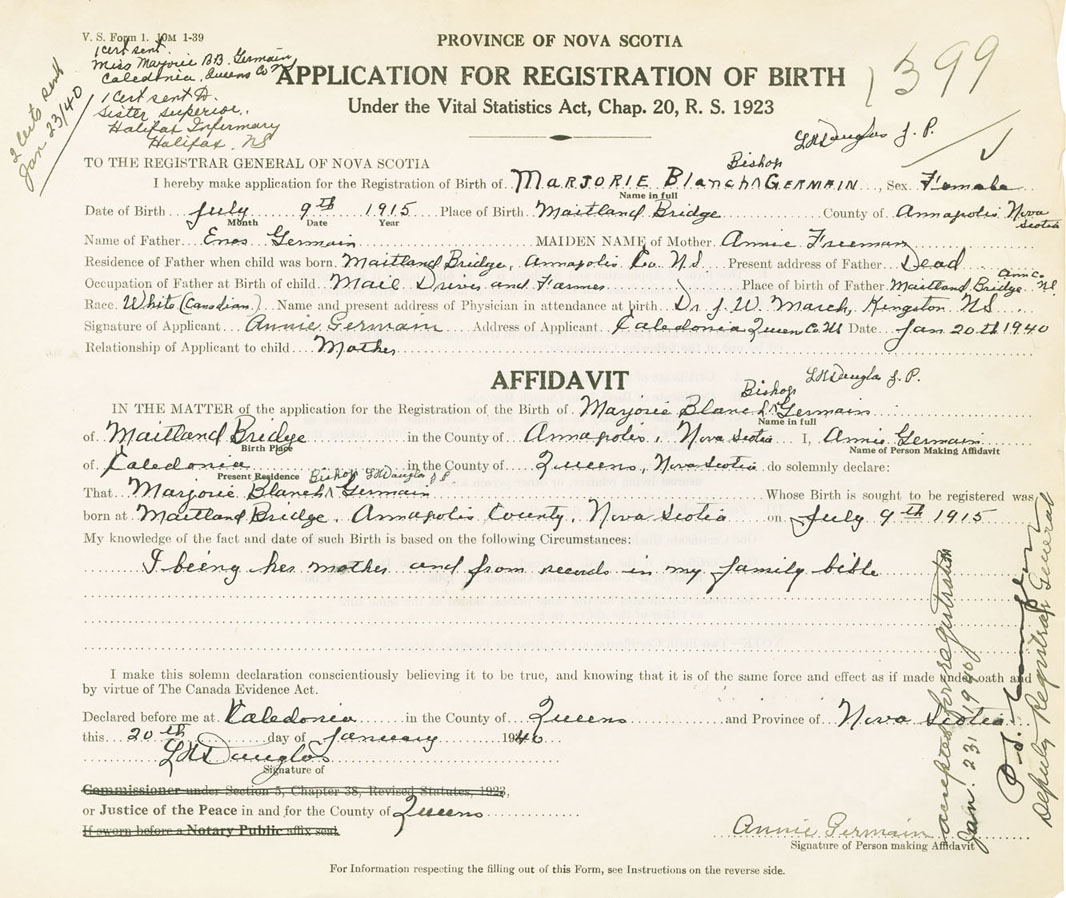 V. S. Form 1. 10M 1-39
1 cert sent.
Miss Marjorie B.B. Germain
Caledonia, Queens Co NS
1 Cert sent to.
Sister Superior,
Halifax Infirmary
Halifax, NS
2 Certs sent
Jan 23/40
PROVINCE OF NOVA SCOTIA
APPLICATION FOR REGISTRATION OF BIRTH
1399
Under the Vital Statistics Act, Chap. 20, R. S. 1923
LH Douglas J. P.
TO THE REGISTRAR GENERAL OF NOVA SCOTIA
Bishop
I hereby make application for the Registration of Birth of MARJORIE Blanch ^ GERMAIN, Sex Female
Name in full
Date of Birth July 9th 1915 Place of Birth Maitland Bridge County of Annapolis Nova Scotia
Month Date Year
Name of Father Enos Germain MAIDEN NAME of Mother Annie Freeman
Residence of Father when child was born Maitland Bridge, Annapolis Co. N.S. Present address of Father Dead
Occupation of Father at Birth of child Mail Driver and Farmer Place of birth of Father Maitland Bridge NS
Race White (Canadian) Name and present address of Physician in attendance at birth Dr. J. W. March, Kingston NS
Signature of Applicant Annie Germain Address of Applicant Caledonia Queen Co. NS Date Jan 20th 1940
Relationship of Applicant to child Mother
AFFIDAVIT
LH Douglas J. P.
Bishop
IN THE MATTER of the application for the Registration of the Birth of Marjorie Blanch ^ Germain
Name in full
of Maitland Bridge in the County of Annapolis, Nova Scotia I, Annie Germain
Birth Place Name of Person Making Affidavit
of Caledonia in the County of Queens, Nova Scotia do solemnly declare:
Present Residence Bishop LH Douglas J P.
That Marjorie Blanch ^ Germain Whose Birth is sought to be registered was
born at Maitland Bridge, Annapolis County, Nova Scotia on July 9th 1915
My knowledge of the fact and date of such Birth is based on the following Circumstances:
I being her mother and from records in my family bible
I make this solemn declaration conscientiously believing it to be true, and knowing that it is of the same force and effect as if made under oath and
by virtue of The Canada Evidence Act.
Declared before me at Caledonia in the County of Queens and Province of Nova Scotia
this 20th day of January 1940
LH Douglas
Signature of
Commissioner under Section 5, Chapter 38, Revised Statutes, 1923,
or Justice of the Peace in and for the County of Queens
If sworn before a Notary Public affix seal.
Annie Germain
Signature of Person making Affidavit
For Information respecting the filling out of this Form, see Instructions on the reverse side.
accepted for registration
Jan. 23, 1940
Deputy Registrar General